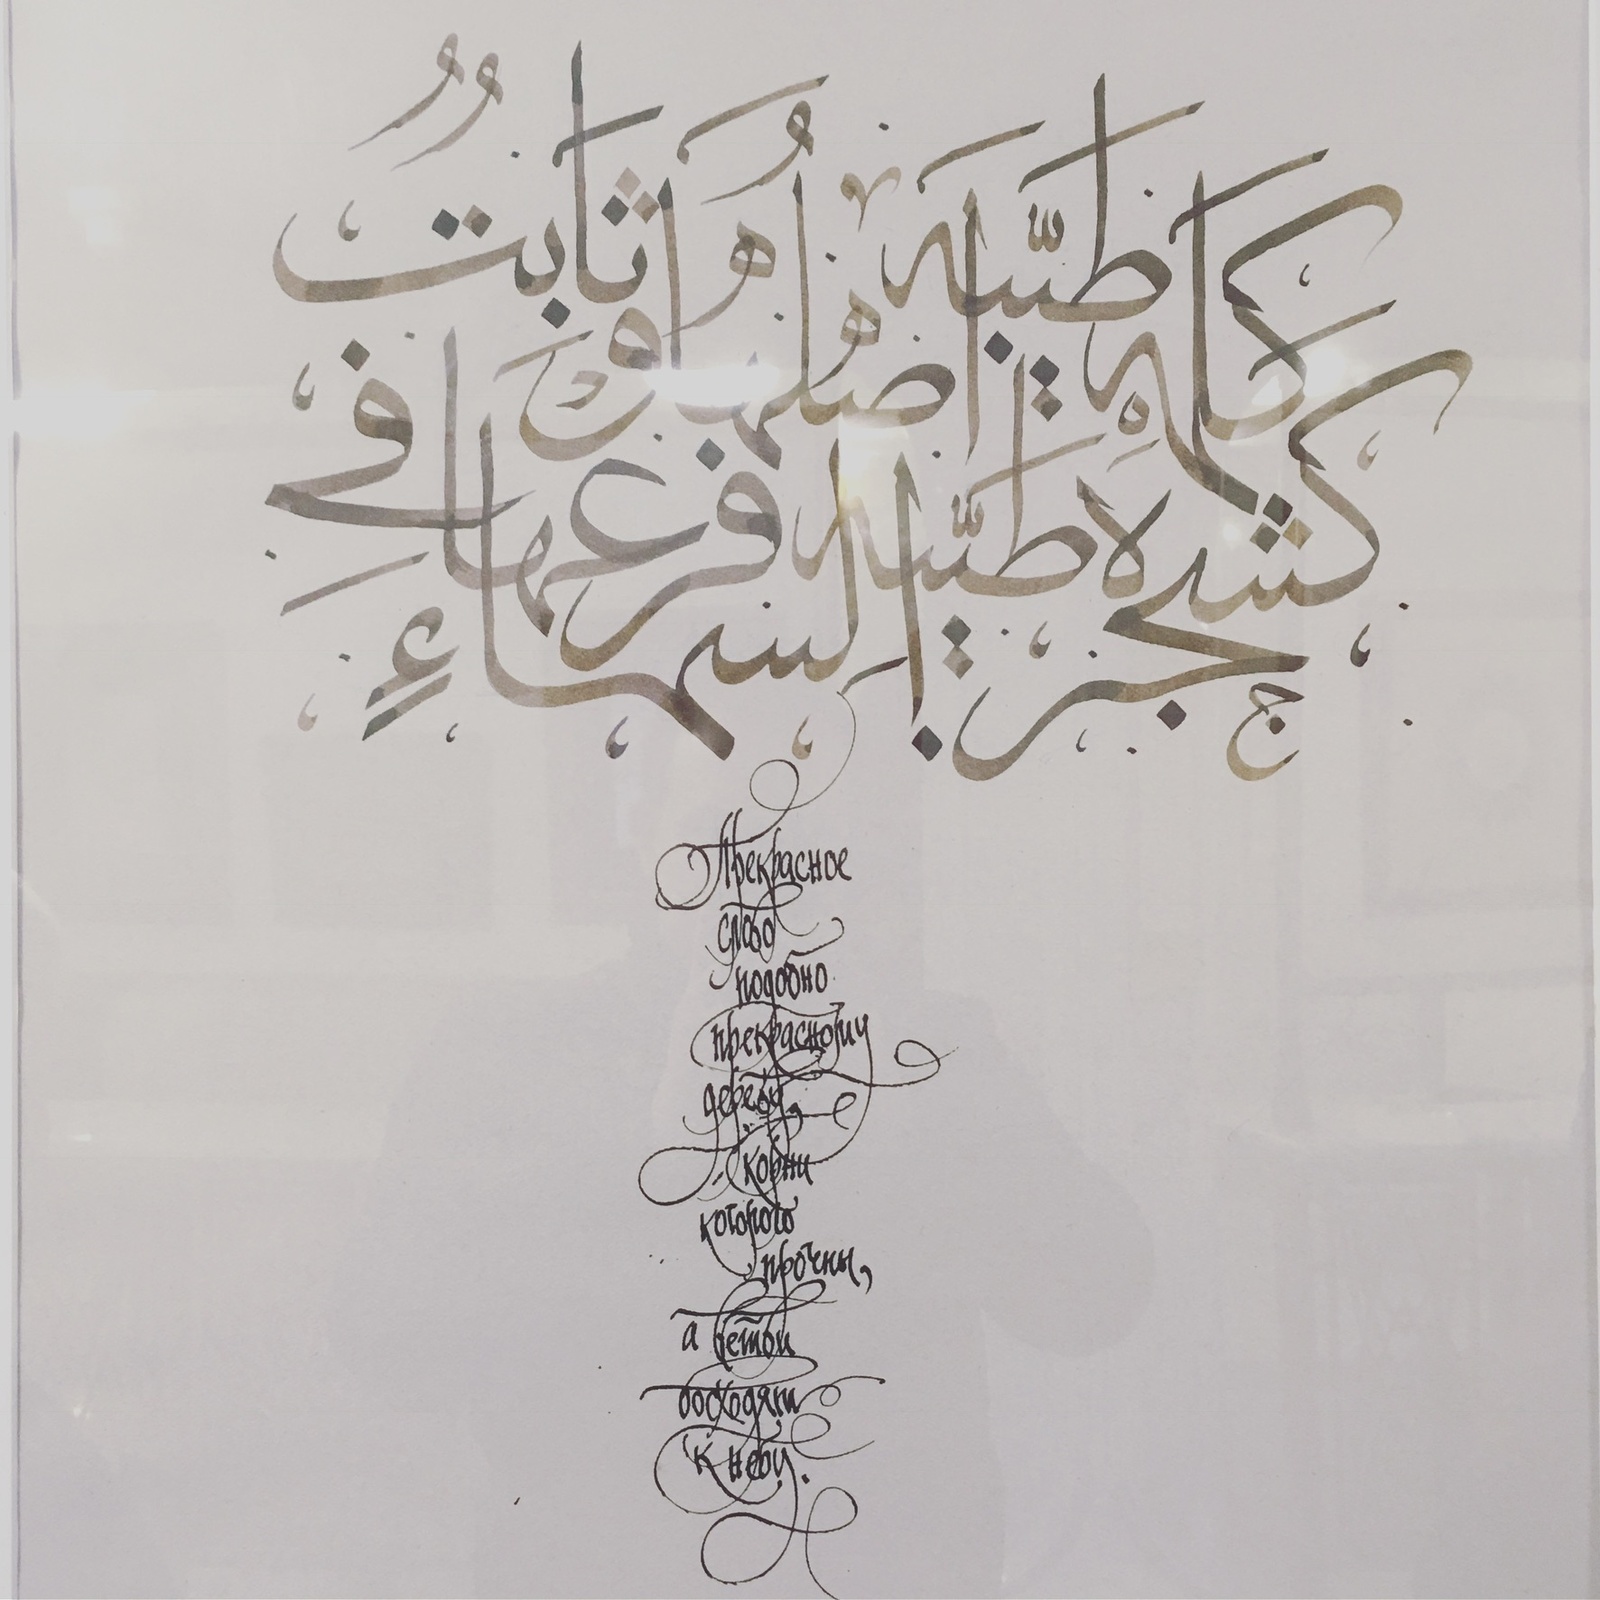 كلمة طيبة
كشجرة طيبة
أصلها ثابت
و فرعها في
السماء
Прекрасное
слово
подобно
прекрасному
дереву,
корни
которого
прочны,
а ветви
восходят
к небу.